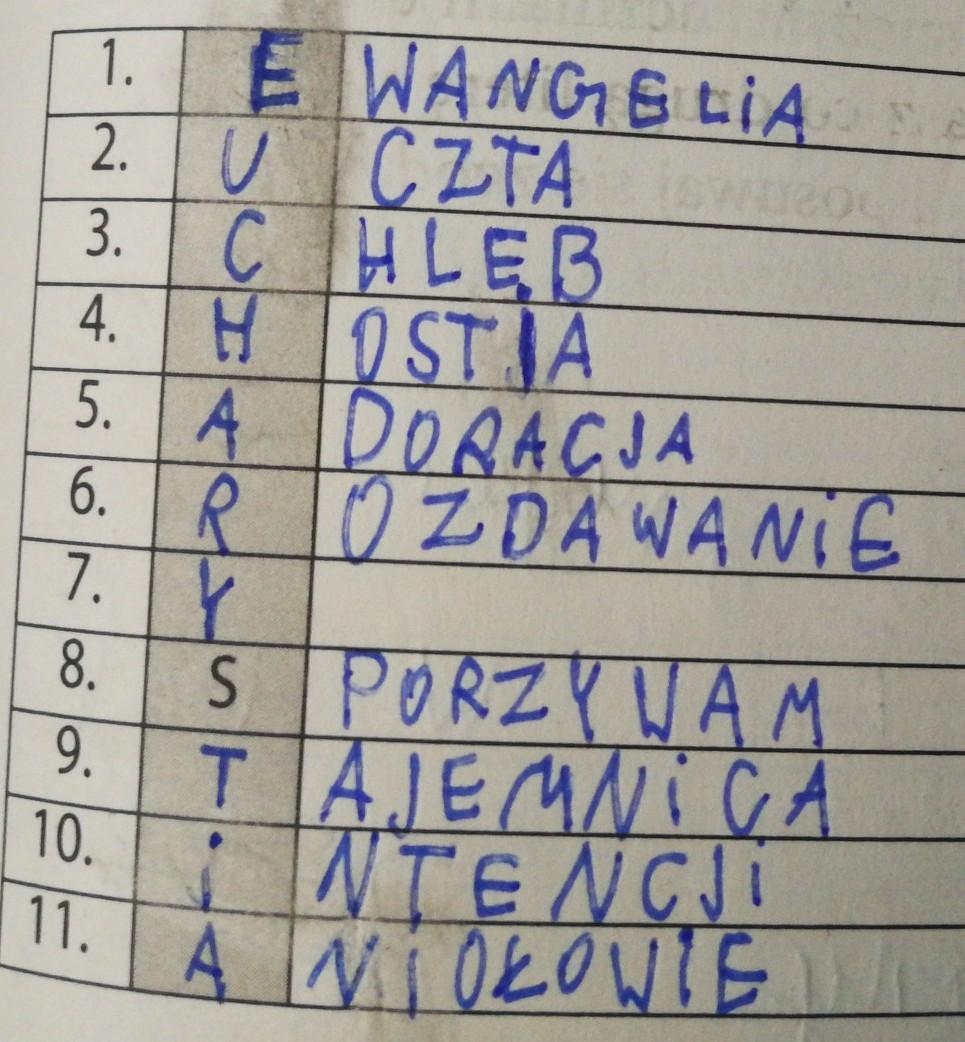 1. E WANGELiA
2. U CZTA
3. C HLEB
4. H OSTIA
5. A DORACJA
6. R OZDAWANiE
7. Y
8. S PORZYWAM
9. T AJEMNiCA
10. i NTENCJi
11. A NiOŁOWIE